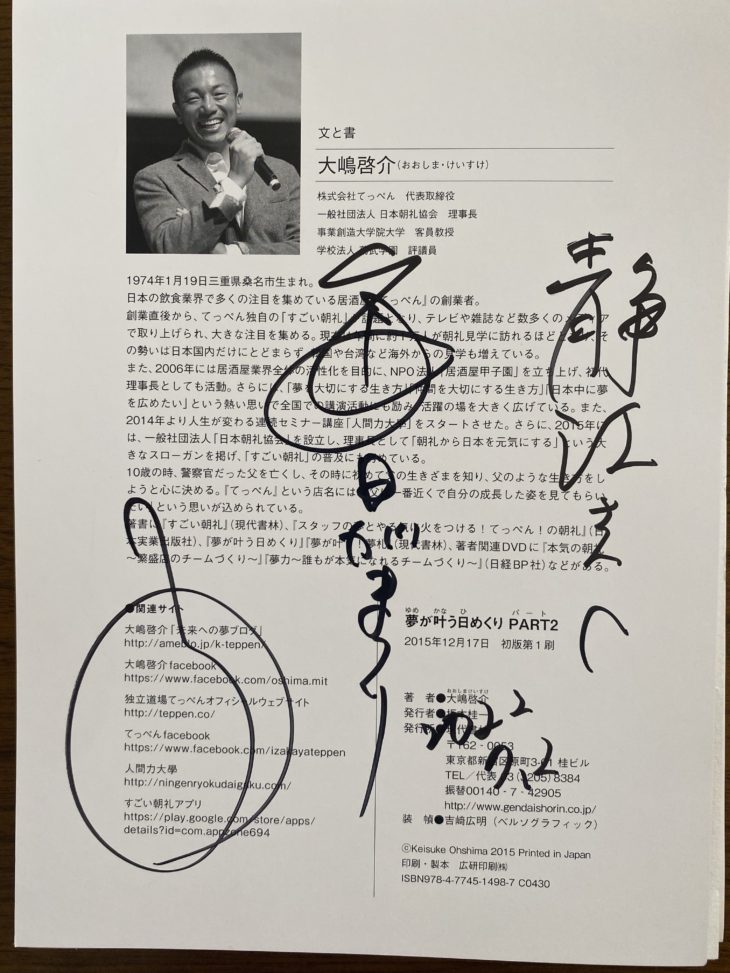 文と書
大嶋啓介(おおしま・けいすけ)
株式会社てっぺん 代表取締役
一般社団法人 日本朝礼協会 理事長
事業創造大学院大学 客員教授
学校法人 学園 評議員
1974年1月19日三重県桑名市生まれ。
日本の飲食業界で多くの注目を集めている居酒屋『てっぺん』の創業者。
創業直後から、てっぺん独自の『すごい朝礼』が話題となり、テレビや雑誌など数多くのメディア
で取り上げられ、大きな注目を集める。現在は年間に約1万人が朝礼見学に訪れるほど そ
の勢いは日本国内だけにとどまらず、韓国や台湾など海外からの見学も増えている。
また、2006年には居酒屋業界全体の活性化を目的に、NPO法人「居酒屋甲子園」を立ち上げ、初代
理事長としても活動。さらには、「夢を大切にする生き方」「仲間を大切にする生き方」「日本中に夢
を広めたい」という熱い思いで全国での講演活動にも励み、活躍の場を大きく広げている。また、
2014年より人生が変わる連続セミナー講座「人間力大學」をスタートさせた。さらに、2015年に
は、一般社団法人「日本朝礼協会」を設立し、理事長として「朝礼から日本を元気にする」という大
きなスローガンを掲げ、「すごい朝礼」の普及にも努めている。
10歳の時、警察官だった父を亡くし、その時に初めて父の生きざまを知り、父のような生き方をし
ようと心に決める。『てっぺん』という店名には 父 一番近くで自分の成長した姿を見てもらい
たい」という思いが込められている。
著書に『すごい朝礼』(現代書林)、『スタッフの心とやる気に火をつける!てっぺん!の朝礼』(日
本実業出版社)、『夢が叶う日めくり』『夢が叶う!夢札』(現代書林)、著者関連DVDに『本気の朝礼
〜繁盛店のチームづくり〜』『夢力〜誰もが本気になれるチームづくり〜』(日経BP社)などがある。
●関連サイト
大嶋啓介「未来への夢ブログ」
http://ameblo.jp/k-teppen/
大嶋啓介facebook
https://www.facebook.com/oshima.mit
独立道場てっぺんオフィシャルウェブサイト
http://teppen.co/
てっぺんfacebook
https://www.facebook.com/izakayateppen
人間力大學
http://ningenryokudaigaku.com/
すごい朝礼アプリ
https://play.google.com/store/apps/
details?id=com.appzone694
夢が叶う日めくり PART2
ゆめ かな ひ パート
2015年12月17日 初版第1刷
おおしまけいすけ
著 者●大嶋啓介
発行者●坂本桂一
発行所●現代書林
〒162-0053
東京都新宿区原町3-61 桂ビル
TEL/代表 03(3205)8384
振替00140-7-42905
http://www.gendaishorin.co.jp/
装 幀●吉崎広明(ベルソグラフィック)
©Keisuke Ohshima 2015 Printed in Japan
印刷・製本 広研印刷㈱
ISBN978-4-7745-1498-7 C0430
静江さんへ
2022